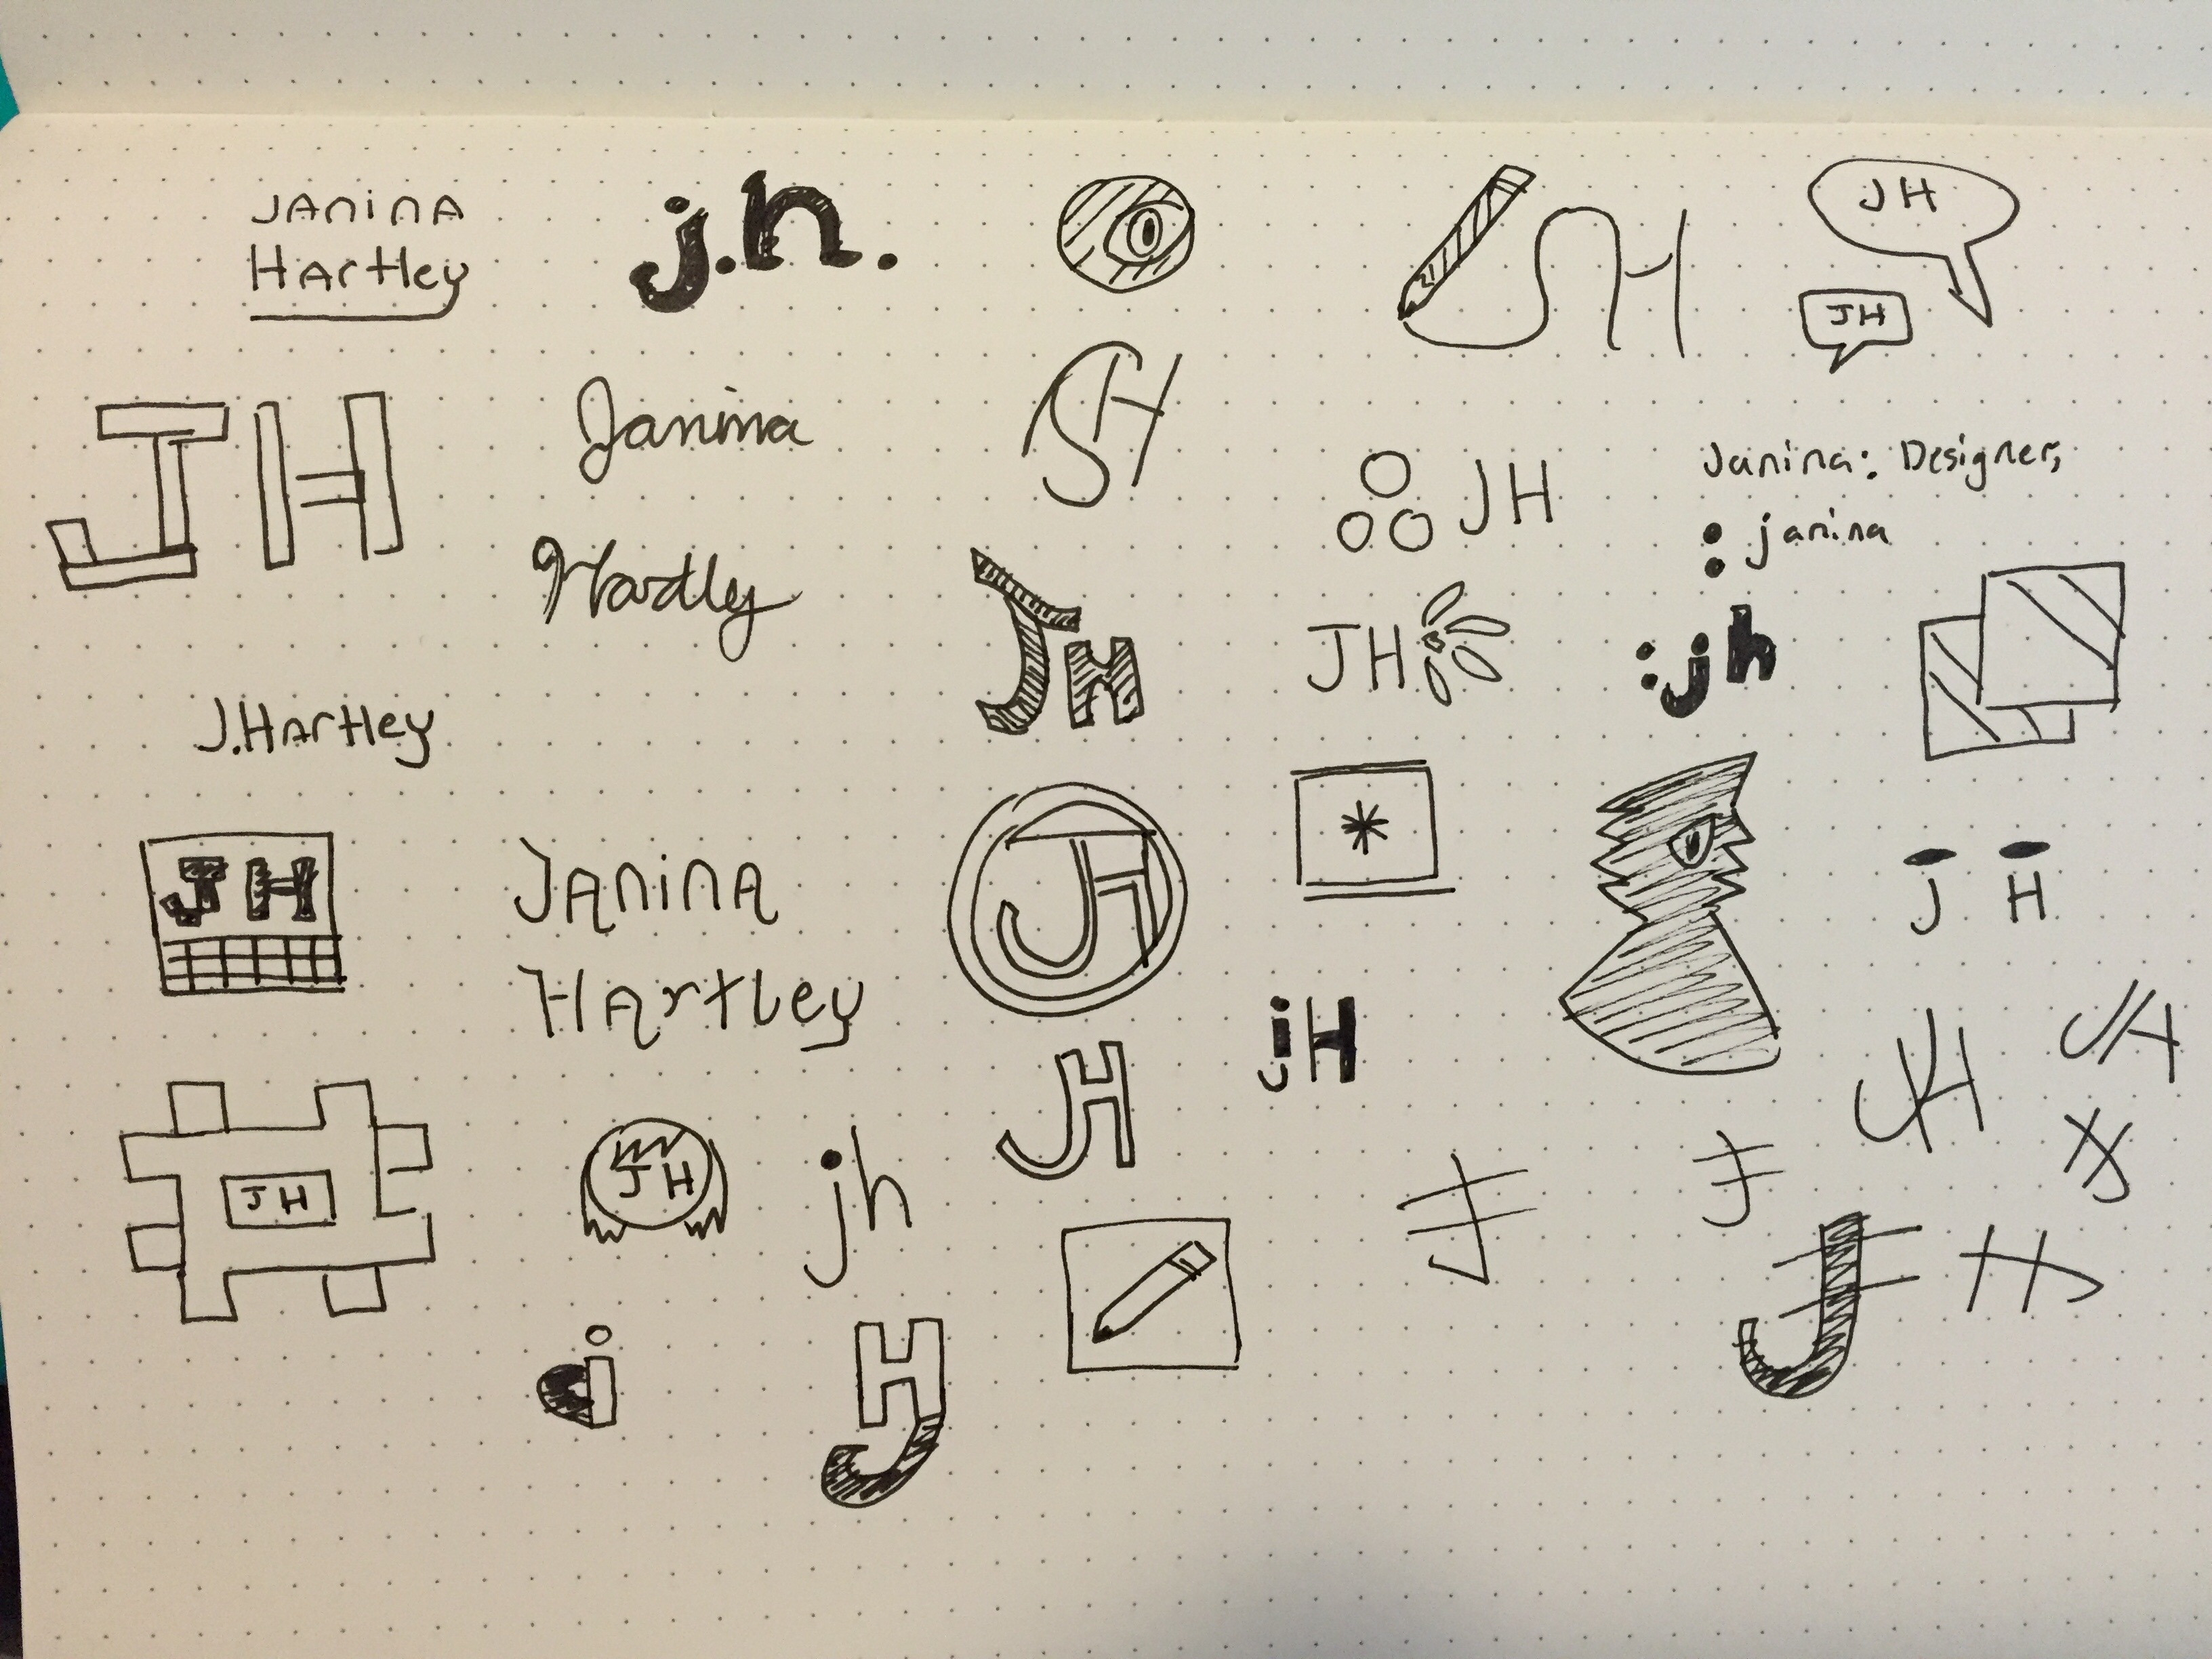 JAninA
HArtley
j.h.
JH
JH
JH
JH
Janina
JH
JH
Janina: Designer;
janina
JH
JH
:jh
J.HArtley
JH
JAninA
HArtley
JH
*
J H
jH
JH
JH
JH
JH
jh
JH
J
H
HJ